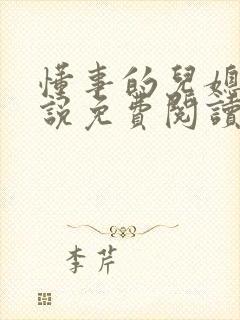 懂事的兒媳
說免費閱讀
李芹